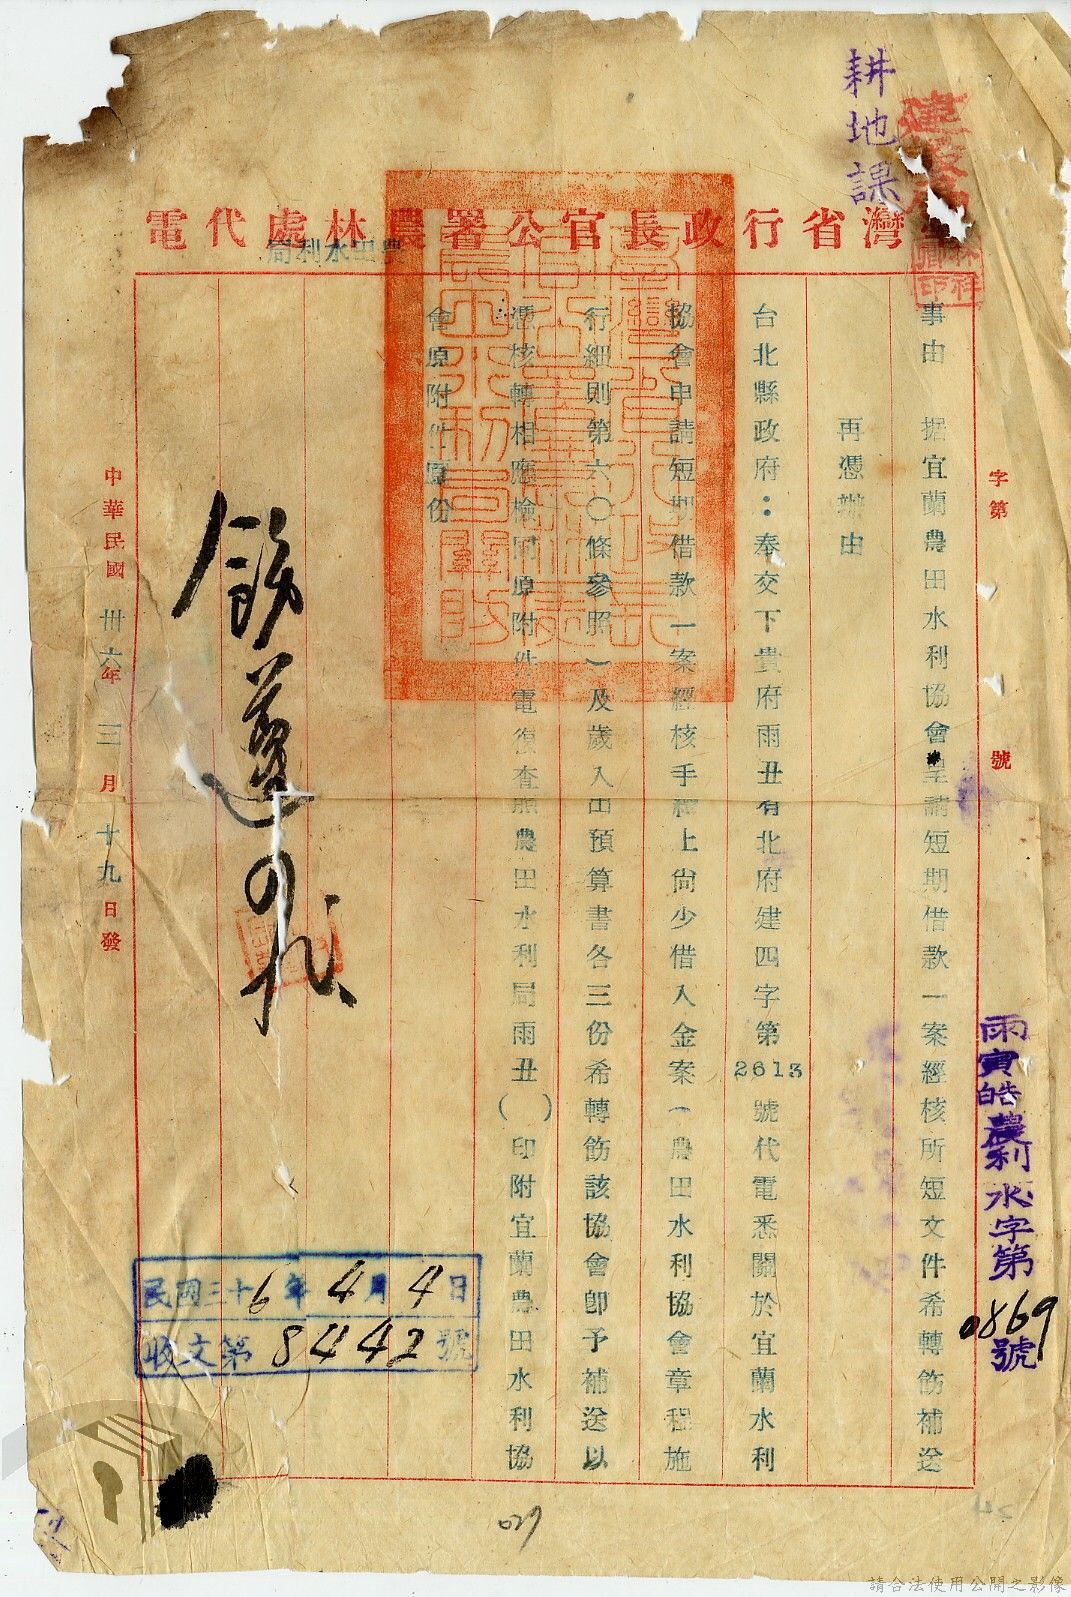 耕地課
灣省行政長官公署農林處代電
農田水利局
字第 號
雨寅皓農利水字第0869號
事由 据宜蘭農田水利協會呈請短期借款一案經核所短文件希轉筋補送
再憑辦由
台北縣政府：奉交下貴府雨丑有北府建四字第2613號代電悉關於宜蘭水利
協會申請短期借款一案經核手續上尙少借入金案(農田水利協會章程施
行細則第六〇條參照)及歲入出預算書各三份希轉筋該協會卽予補送以
憑核轉相應檢同原附件電復查照農田水利局雨丑( )印附宜蘭農田水利協
會原附件原份
飭遵
中華民國卅六年三月十九日發
民國三十6年4月4日
收文第8442號
029
請合法使用公開之影像